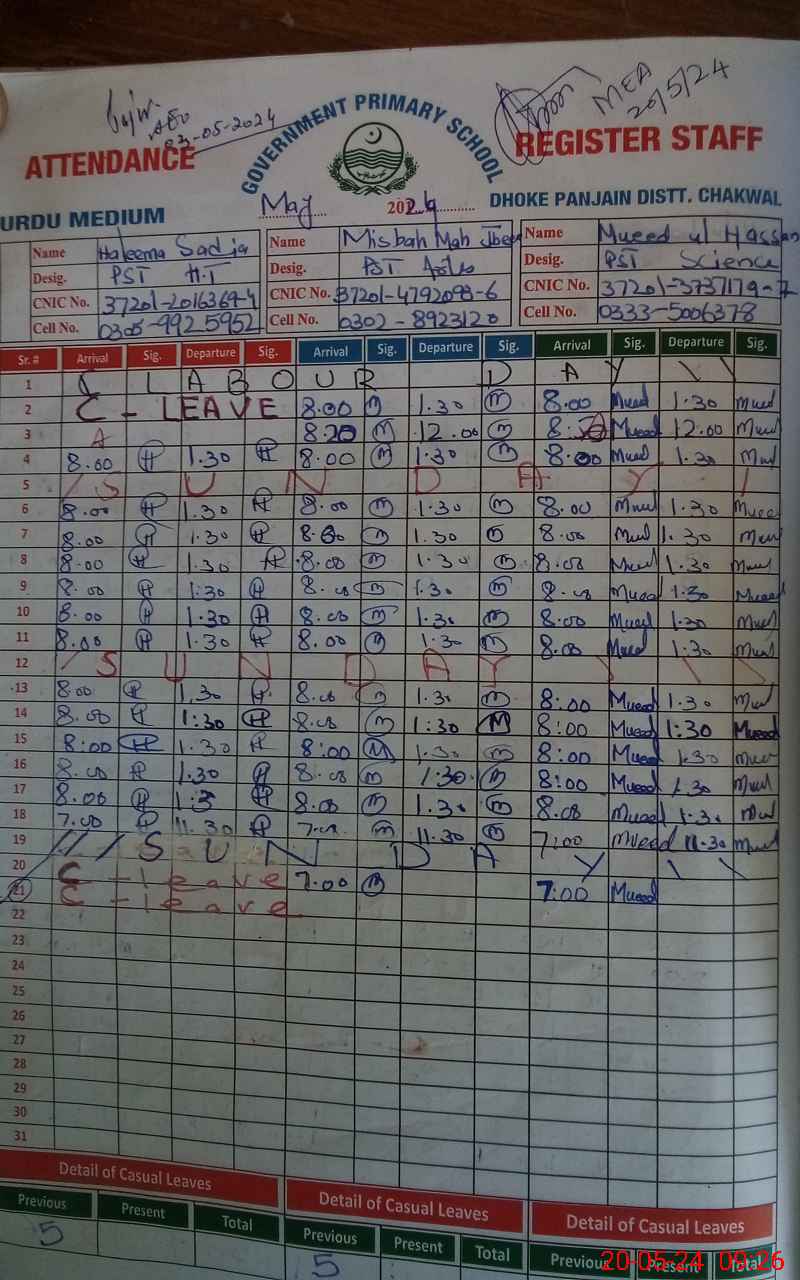 AEO
02-05-2024
MEA
20/5/24
GOVERNMENT PRIMARY SCHOOL
ATTENDANCE
REGISTER STAFF
URDU MEDIUM
May 2024
DHOKE PANJAIN DISTT. CHAKWAL
Name Haleema Sadia Name Misbah Mah Name Mueed ul Hassan
Desig. PST H.T Desig. PST Arts Desig. PST Science
CNIC No. CNIC No. 37201-4792098-6 CNIC No.
Cell No. Cell No. 0302-8923120 Cell No. 0333-5006378
Sr. # Arrival Sig. Departure Sig. Arrival Sig. Departure Sig. Arrival Sig. Departure Sig.
1 LABOUR DAY
2 C-LEAVE 8.00 m 1.30 m 8.00 Mueed 1.30 Mueed
3 A 8.20 m 12.00 m Mueed 12.00 Mueed
4 8.00 H 1.30 H 8.00 m 1.30 m 8.00 Mueed 1.30 Mueed
5 SUNDAY
6 8.00 H 1.30 H 8.00 m 1.30 m 8.00 Mueed 1.30 Mueed
7 8.00 H 1.30 H 8.00 m 1.30 m 8.00 Mueed 1.30 Mueed
8 8.00 H 1.30 H 8.00 m 1.30 m 8.00 Mueed 1.30 Mueed
9 8.00 H 1:30 H 8.00 m 1.30 m 8.00 Mueed 1:30 Mueed
10 8.00 H 1:30 H 8.00 m 1.30 m 8.00 Mueed 1:30 Mueed
11 8.00 H 1:30 H 8.00 m 1:30 m 8.00 Mueed 1:30 Mueed
12 SUNDAY
13 8.00 H 1.30 H 8.00 m 1.30 m 8:00 Mueed 1.30 Mueed
14 8.00 H 1:30 H 8.00 m 1:30 M 8:00 Mueed 1:30 Mueed
15 8:00 H 1.30 H 8:00 M 1.30 m 8:00 Mueed 1.30 Mueed
16 8.00 H 1.30 H 8.00 m 1:30 m 8:00 Mueed 1.30 Mueed
17 8.00 H 1:3 H 8.00 m 1.30 m 8.00 Mueed 1.30 Mueed
18 7.00 H 11.30 H 7.00 m 11.30 m 7:00 Mueed 11.30 Mueed
19 SUNDAY
20 C-leave 7.00 m 7:00 Mueed
21 C-leave
22
23
24
25
26
27
28
29
30
31
Detail of Casual Leaves Detail of Casual Leaves Detail of Casual Leaves
Previous Present Total Previous Present Total Previous Present Total
5 5
20-05-24 09:26